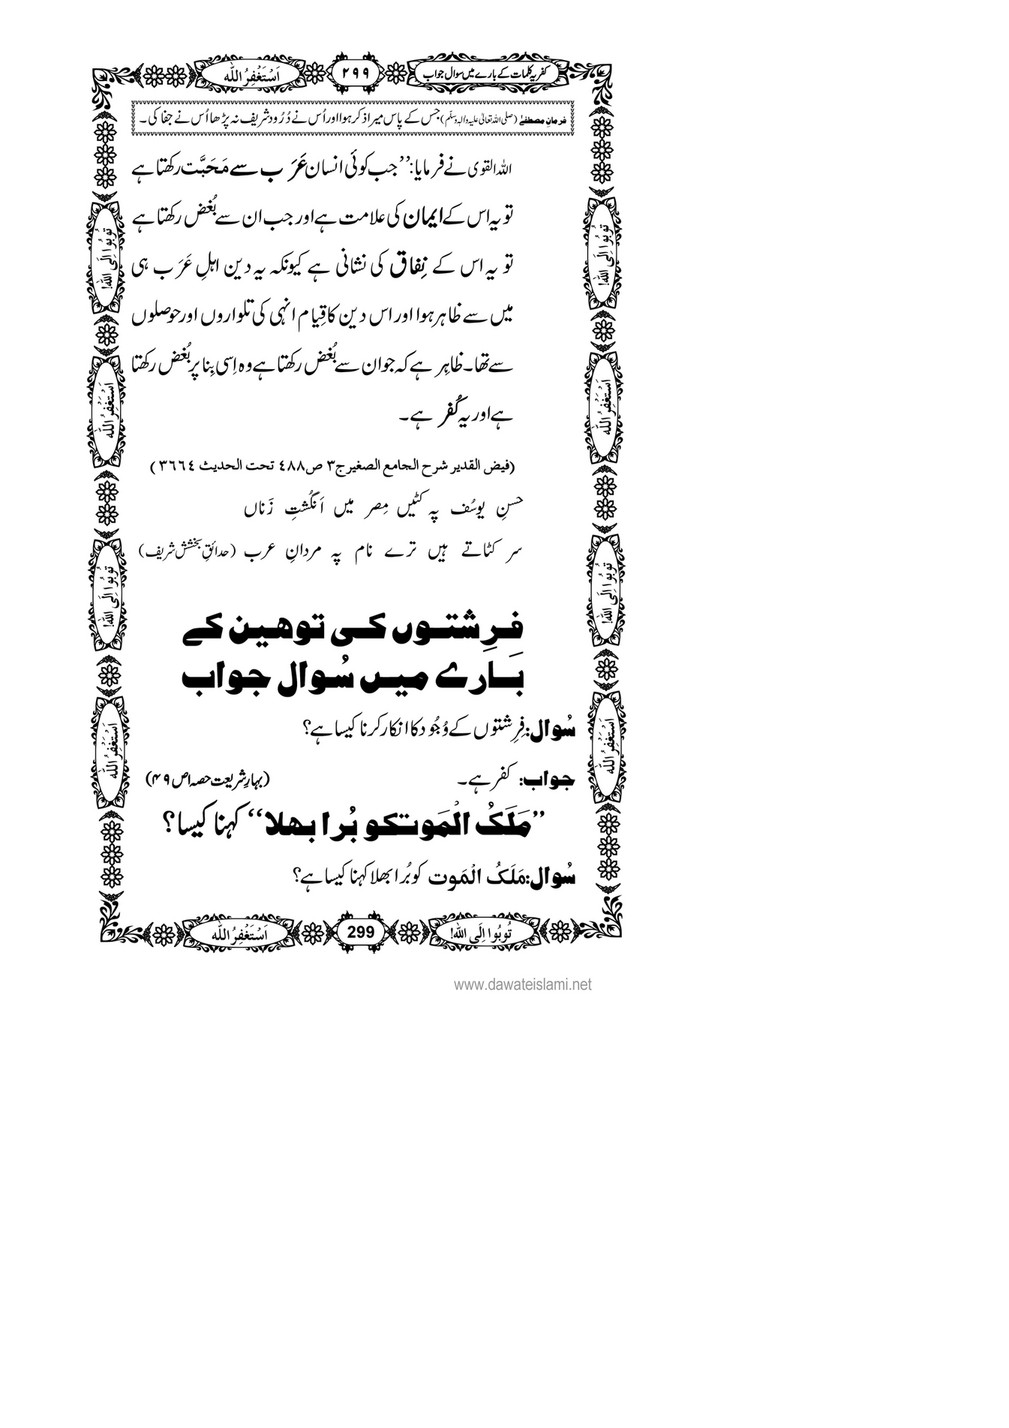 کفریہ کلمات کے بارے میں سوال جواب
۲۹۹
اَسْتَغْفِرُ اللّٰه
فرمانِ مصطفےٰ (صلی اللہ تعالیٰ علیہ واٰلہ وسلّم) جس کے پاس میرا ذکر ہوا اور اُس نے دُرُود شریف نہ پڑھا اُس نے جفا کی۔
اللہ القوی نے فرمایا: ’’جب کوئی انسان عَرَب سے مَحَبَّت رکھتا ہے
تو یہ اس کے ایمان کی علامت ہے اور جب ان سے بُغض رکھتا ہے
تو یہ اس کے نِفاق کی نشانی ہے کیونکہ یہ دین اہلِ عَرَب ہی
میں سے ظاہر ہوا اور اس دین کا قِیام انہی کی تلواروں اور حوصلوں
سے تھا۔ ظاہِر ہے کہ جو ان سے بُغض رکھتا ہے وہ اِسی بِنا پر بُغض رکھتا
ہے اور یہ کُفر ہے۔
(فیض القدیر شرح الجامع الصغیر ج۳ ص۴۸۸ تحت الحدیث ۳۶۶۴)
حسنِ یوسُف پہ کٹیں مِصر میں اَنگُشتِ زَناں
سر کٹاتے ہیں ترے نام پہ مردانِ عرب (حدائقِ بخشش شریف)
فِرِشتوں کی توھین کے
بارے میں سُوال جواب
سُوال: فِرِشتوں کے وُجُود کا انکار کرنا کیسا ہے؟
جواب: کفر ہے۔ (بہارِ شریعت حصہ ۱ ص ۴۹)
’’مَلَکُ الْمَوت کو بُرا بھلا‘‘ کہنا کیسا؟
سُوال: مَلَکُ الْمَوت کو بُرا بھلا کہنا کیسا ہے؟
تُوبُوا اِلَی اللّٰه!
اَسْتَغْفِرُ اللّٰه
تُوبُوا اِلَی اللّٰه!
اَسْتَغْفِرُ اللّٰه
تُوبُوا اِلَی اللّٰه!
اَسْتَغْفِرُ اللّٰه
تُوبُوا اِلَی اللّٰه!
اَسْتَغْفِرُ اللّٰه
تُوبُوا اِلَی اللّٰه!
299
اَسْتَغْفِرُ اللّٰه
www.dawateislami.net